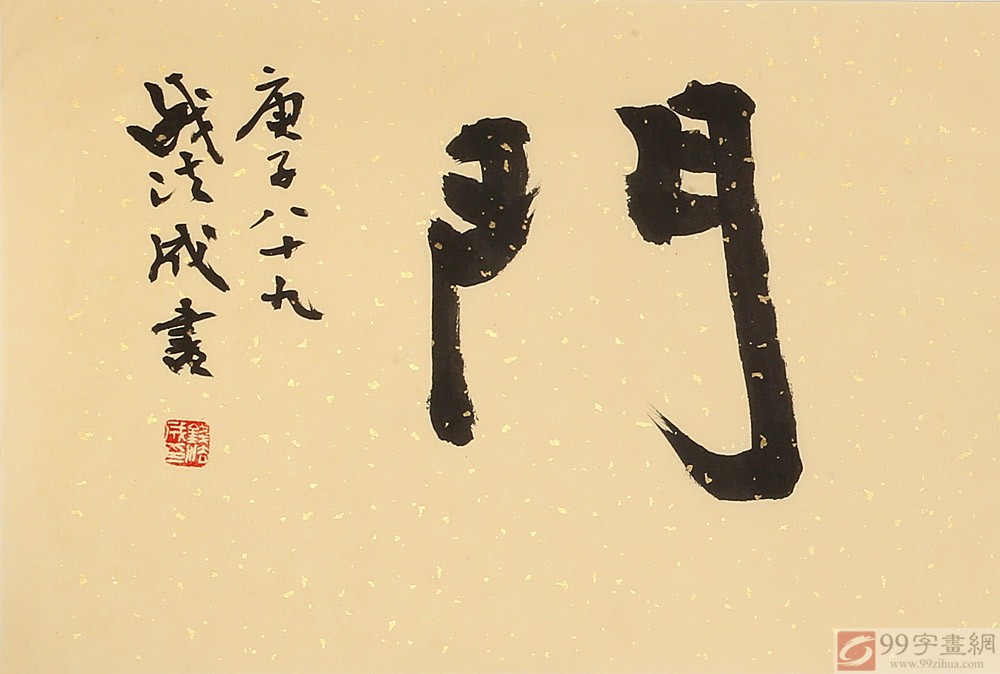 門
庚子八十九
钱法成書
錢法成印
99字畫網
www.99zihua.com